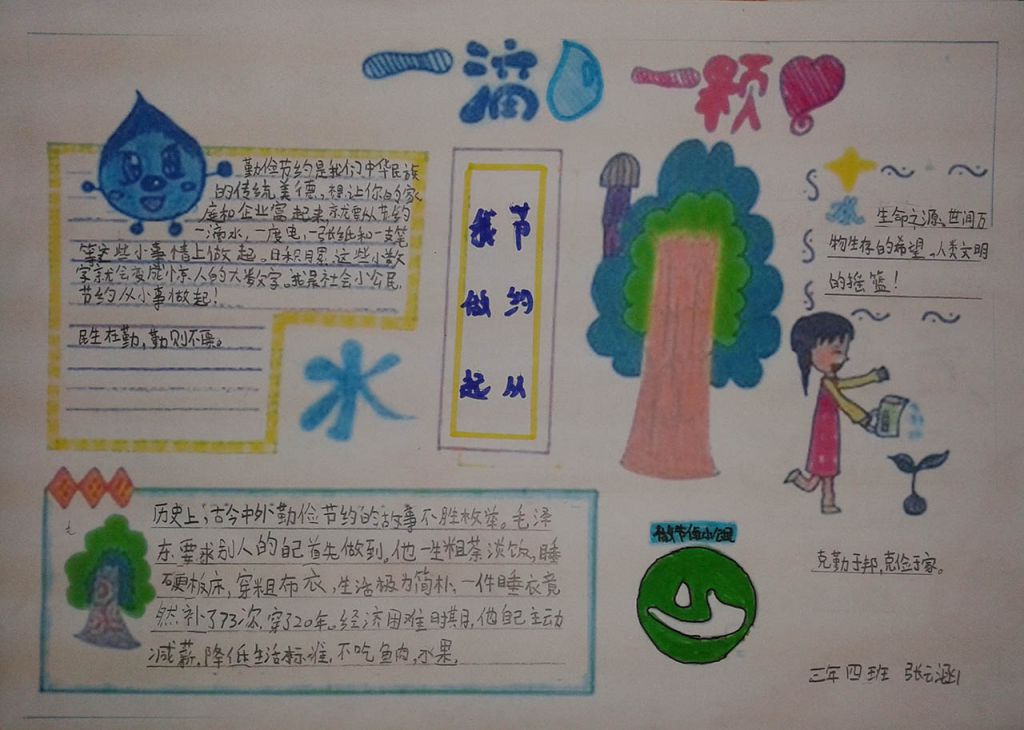 一滴 一颗
勤俭节约是我们中华民族
的传统美德。想让你的家
庭和企业富起来,就要从节约
一滴水,一度电,一张纸和一支笔
等这些小事情上做起。日积月累,这些小数
字就会变成惊人的大数字。我是社会小公民,
节约从小事做起!
民生在勤,勤则不匮。
水
节约从
我做起
水 生命之源。世间万
物生存的希望。人类文明
的摇篮!
历史上,古今中外勤俭节约的故事不胜枚举。毛泽
东要求别人的自己首先做到。他一生粗茶淡饭,睡
硬板床,穿粗布衣,生活极为简朴,一件睡衣竟
然补了73次,穿了20年。经济困难时期,他自己主动
减薪,降低生活标准,不吃鱼肉,水果,
克勤于邦,克俭于家。
三年四班 张云涵